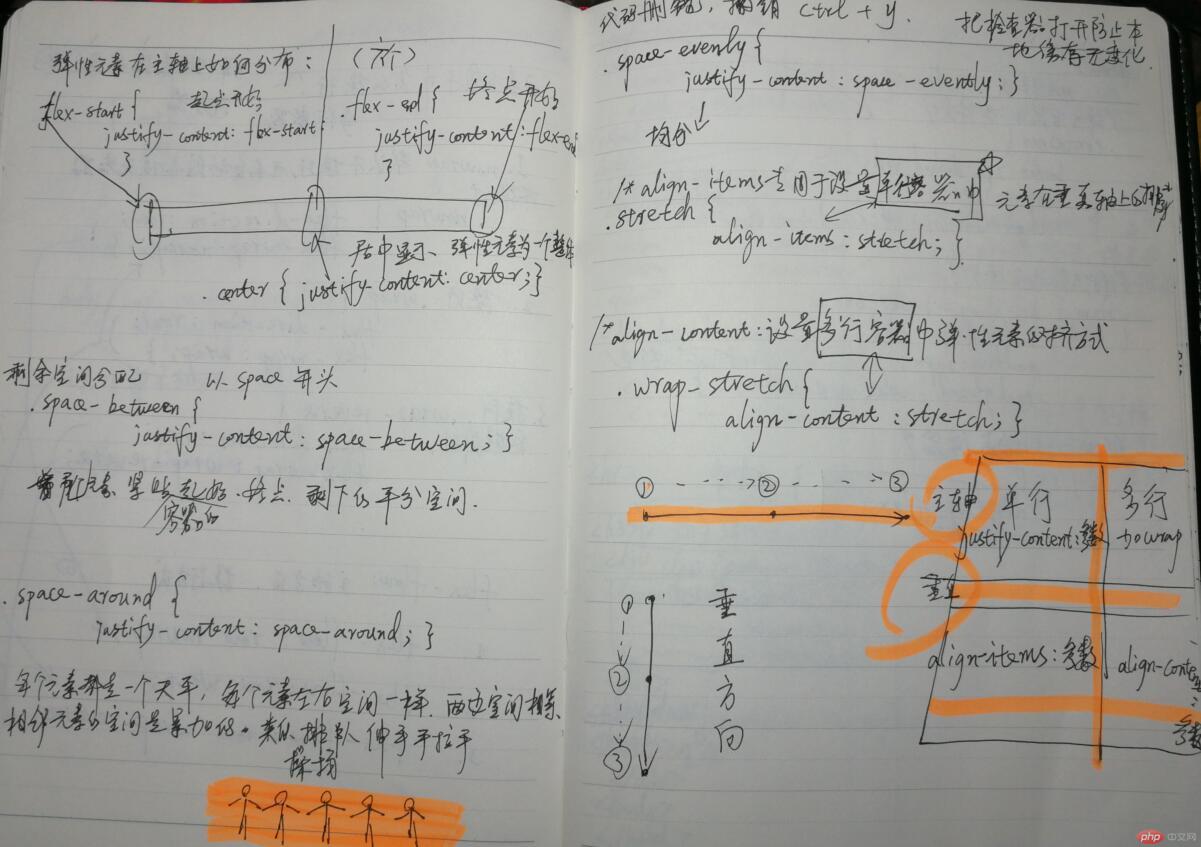 弹性元素在主轴上如何分布:(六个)
flex-start { 起点开始
justify-content: flex-start
}
.flex-end { 终点开始
justify-content: flex-end
}
居中显示、弹性元素为一个整体
.center { justify-content: center; }
剩余空间分配 以 space 开头
.space-between {
justify-content: space-between; }
首尾元素 紧贴起始、终点. 剩下的平分空间.
容器的
.space-around {
justify-content: space-around; }
每个元素都是一个天平, 每个元素左右空间一样. 两边空间相等、
相邻元素的空间是累加的。类似排队 伸手手拉手
操场
代码删, 撤销 ctrl + y.
把检查器打开防止本
地缓存无变化.
.space-evenly {
justify-content: space-evently; }
均分
/* align-items 用于设置单行容器中
元素在垂直轴上的排
.stretch {
align-items: stretch; }
/*align-content: 设置多行容器中弹性元素的对齐方式
.wrap-stretch {
align-content: stretch; }
① ② ③
主轴 单行 多行
justify-content:参数 to wrap
垂直
align-items: 参数 align-conte
:
参数
①
②
③
垂
直
方
向
php 中文网